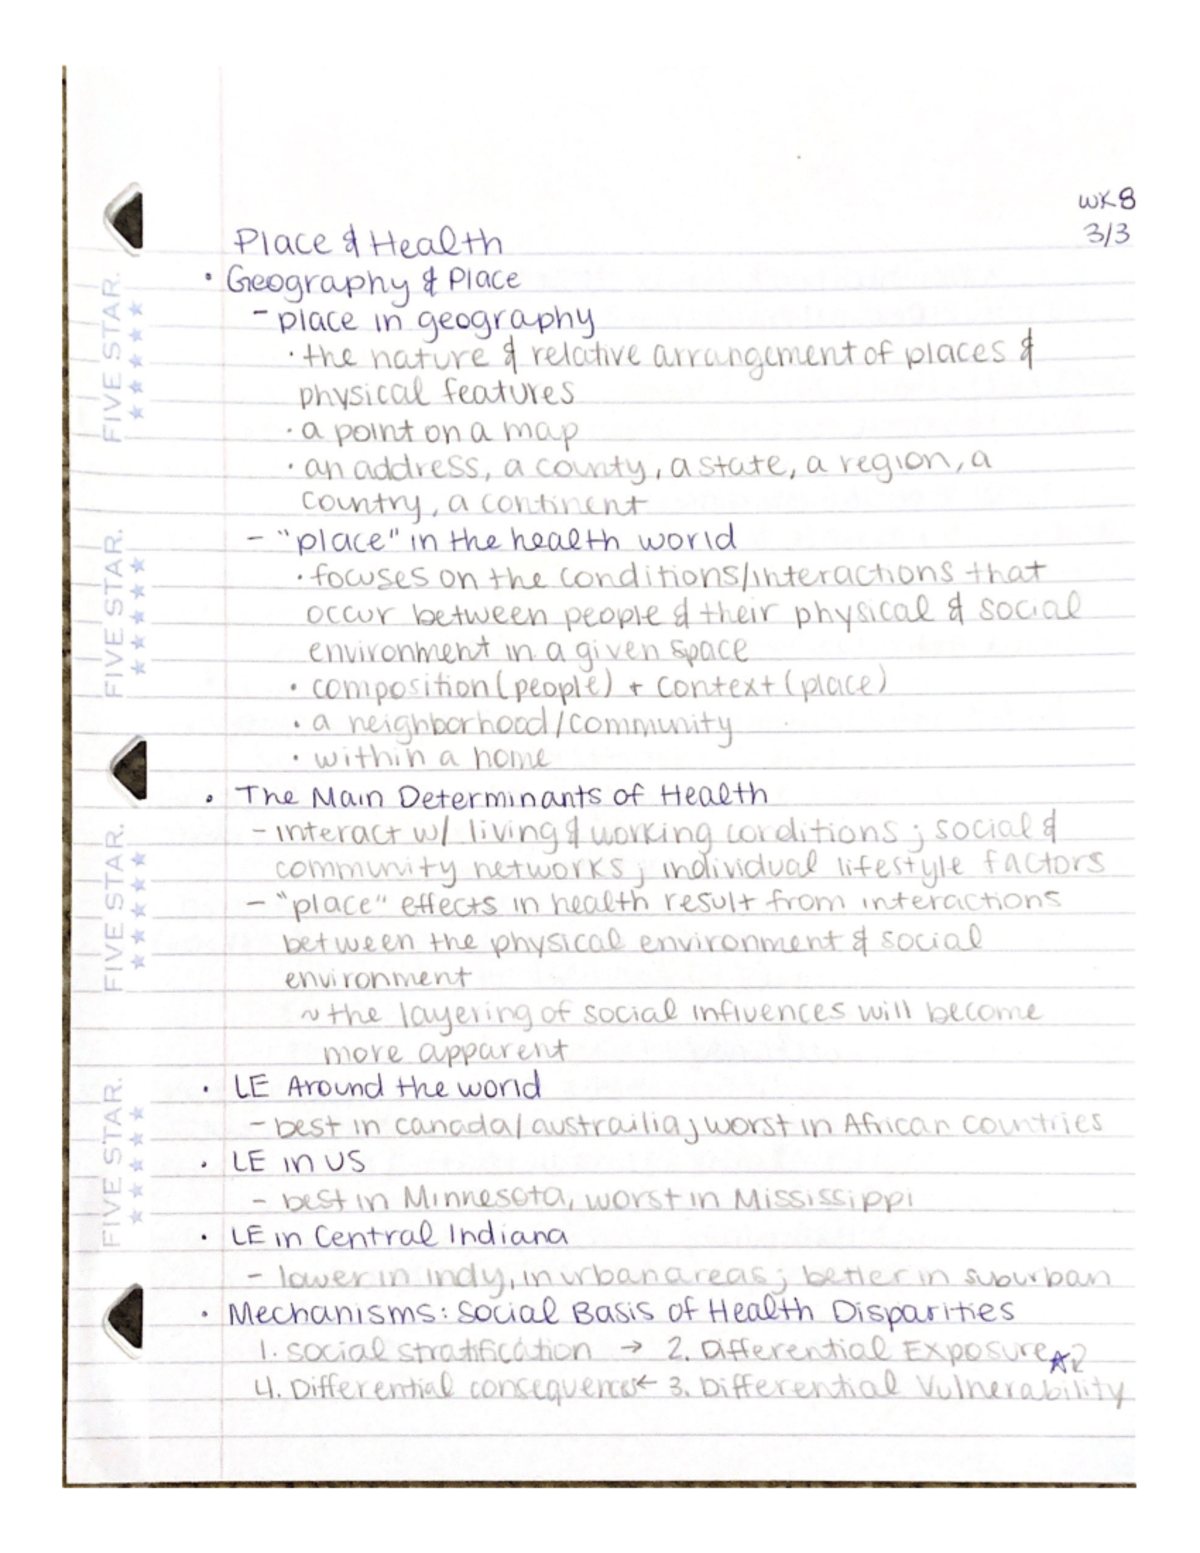 WK 8
3/3
Place & Health
• Geography & Place
- place in geography
• the nature & relative arrangement of places &
physical features
• a point on a map
• an address, a county, a state, a region, a
country, a continent
- "place" in the health world
• focuses on the conditions/interactions that
occur between people & their physical & social
environment in a given space
• composition (people) + context (place)
• a neighborhood/community
• within a home
• The Main Determinants of Health
- interact w/ living & working conditions; social &
community networks; individual lifestyle factors
- "place" effects in health result from interactions
between the physical environment & social
environment
~ the layering of social influences will become
more apparent
• LE Around the world
- best in canada/austrailia; worst in African countries
• LE in US
- best in Minnesota, worst in Mississippi
• LE in Central Indiana
- lower in indy, in urban areas; better in suburban
• Mechanisms: Social Basis of Health Disparities
1. social stratification → 2. Differential Exposure ★2
4. Differential consequence ← 3. Differential Vulnerability
FIVE STAR.
FIVE STAR.
FIVE STAR.
FIVE STAR.